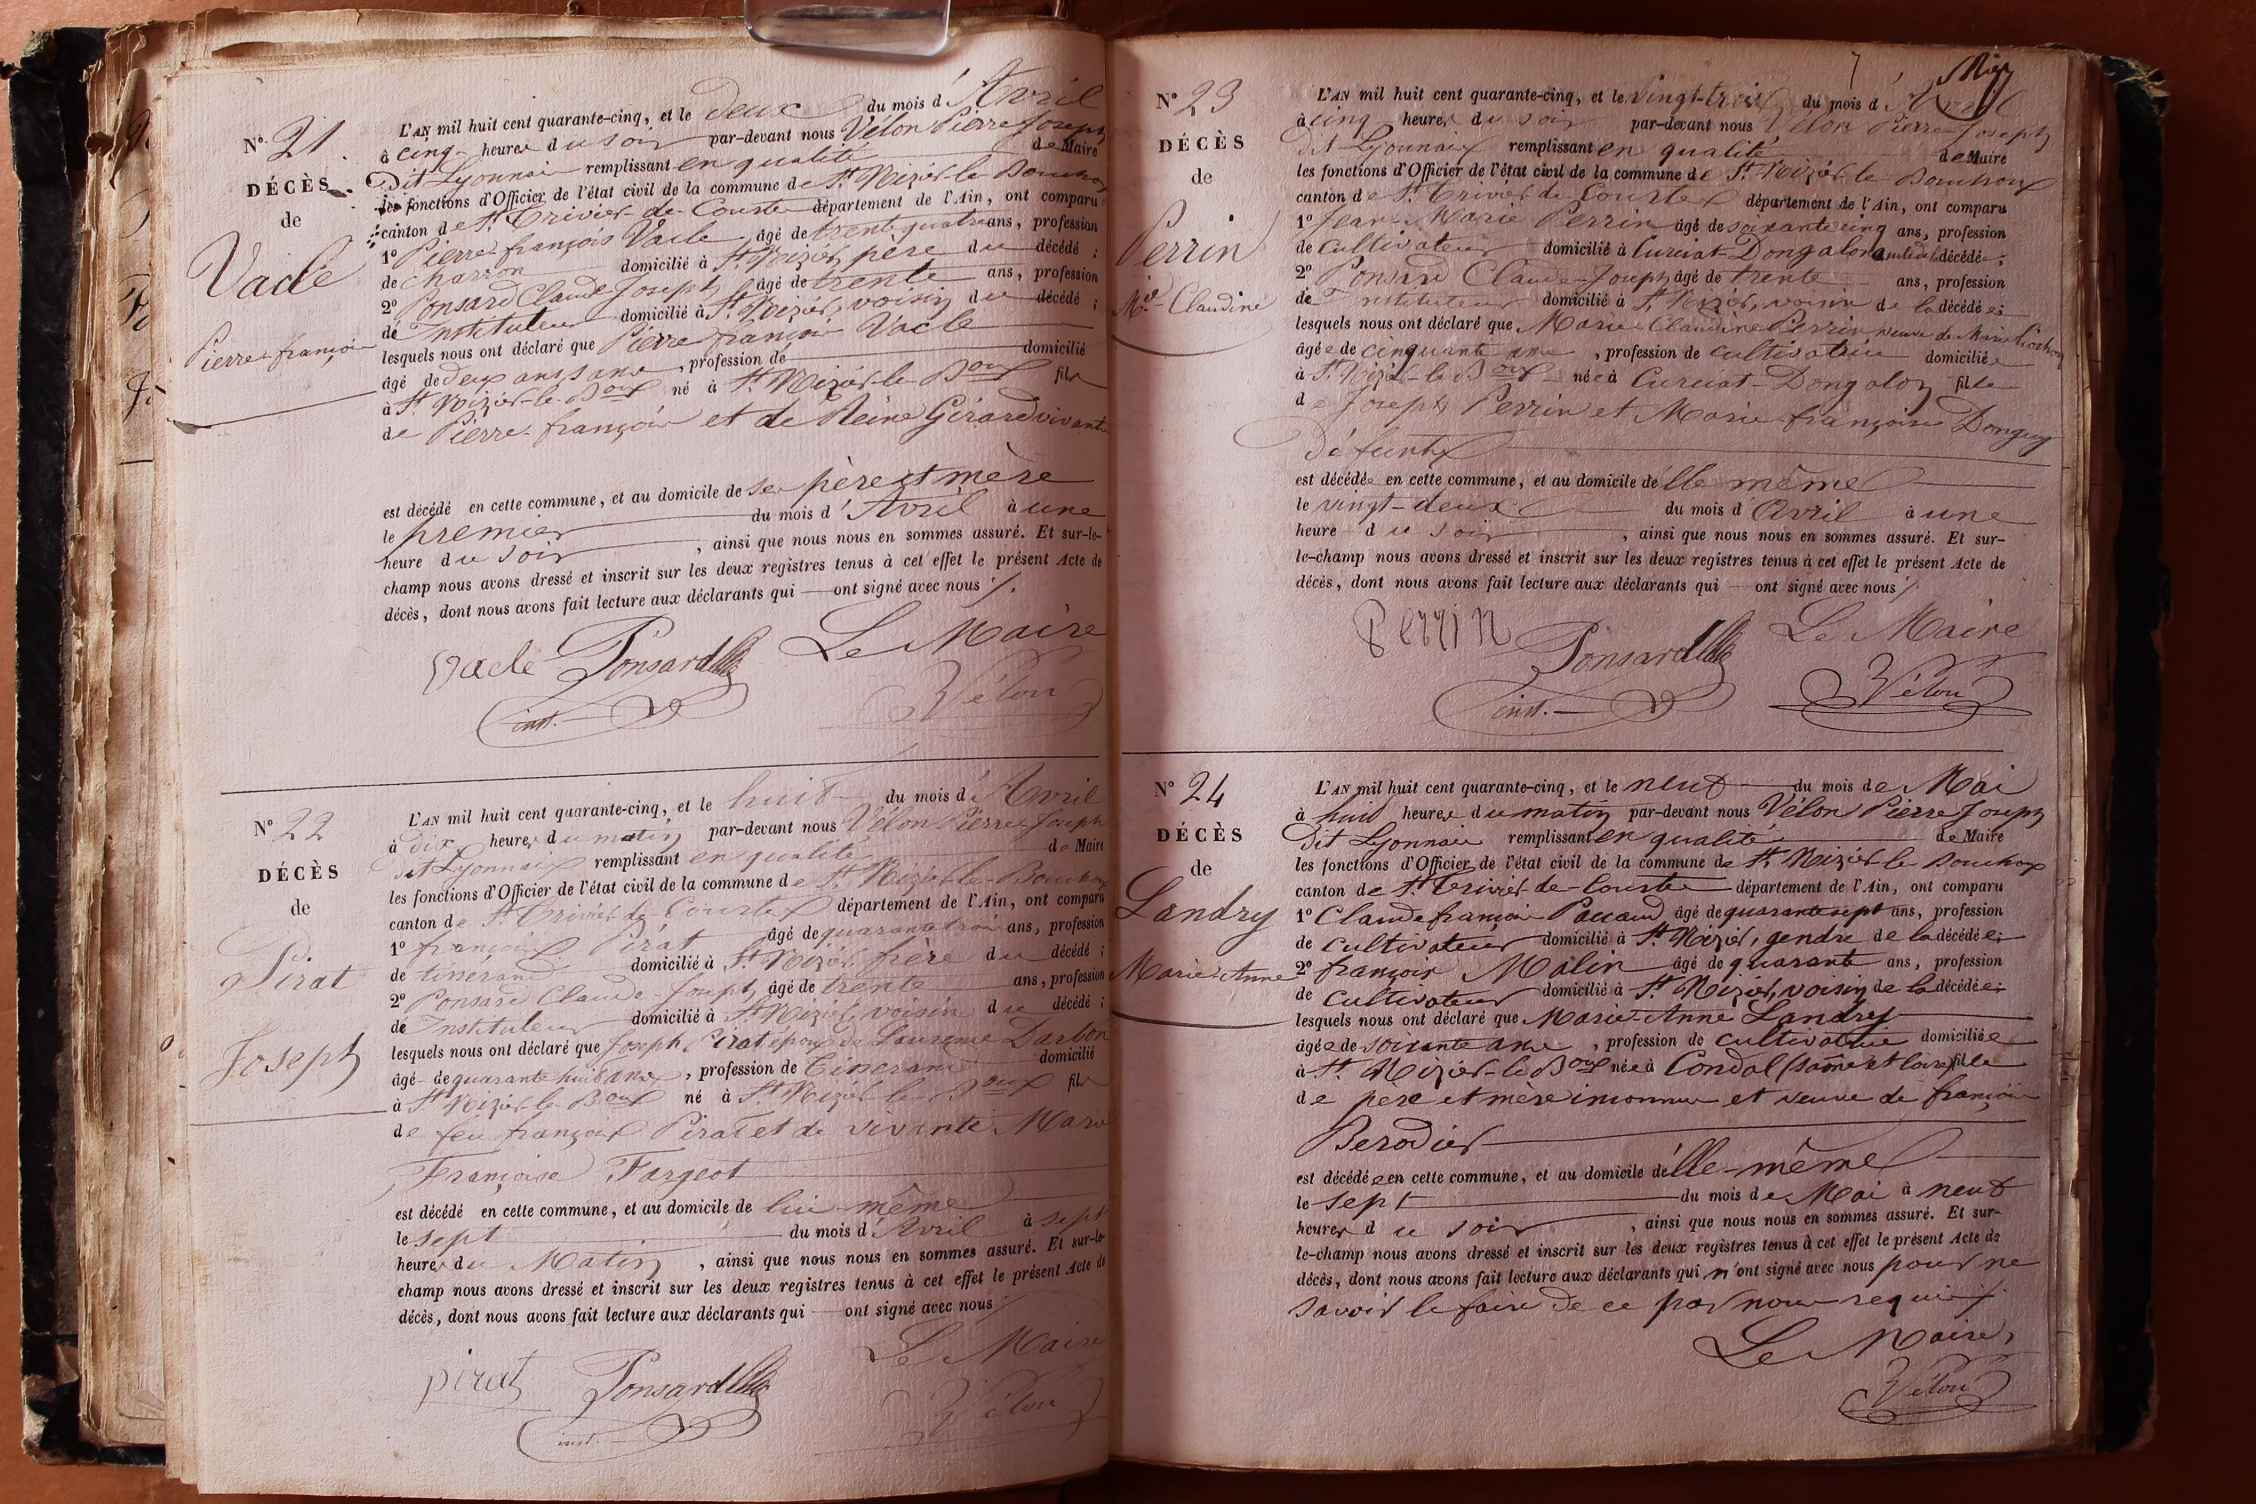 N° 21
DÉCÈS
de
Vacle
Pierre françois
L'AN mil huit cent quarante-cinq, et le deux du mois d'Avril
à cinq heures du soir par-devant nous Vélon Pierre Joseph
dit Lyonnais remplissant en qualité de Maire
les fonctions d'Officier de l'état civil de la commune de St Nizier-le-Bouchoux
canton de St Trivier-de-Courtes département de l'Ain, ont comparu
1° Pierre françois Vacle âgé de trente quatre ans, profession
de charron domicilié à St Nizier, père du décédé ;
2° Ponsard Claude Joseph âgé de trente ans, profession
de Instituteur domicilié à St Nizier, voisin du décédé ;
lesquels nous ont déclaré que Pierre françois Vacle
âgé de deux ans , profession de domicilié
à St Nizier-le-Boux né à St Nizier-le-Boux fils
de Pierre françois et de Reine Girard vivants
est décédé en cette commune, et au domicile de ses père et mère
le premier du mois d'Avril à une
heure du soir , ainsi que nous nous en sommes assuré. Et sur-le-
champ nous avons dressé et inscrit sur les deux registres tenus à cet effet le présent Acte de
décès, dont nous avons fait lecture aux déclarants qui ont signé avec nous
Le Maire
Vacle Ponsard
inst. Vélon
N° 22
DÉCÈS
de
Pirat
Joseph
L'AN mil huit cent quarante-cinq, et le huit du mois d'Avril
à dix heures du matin par-devant nous Vélon Pierre Joseph
dit Lyonnais remplissant en qualité de Maire
les fonctions d'Officier de l'état civil de la commune de St Nizier-le-Bouchoux
canton de St Trivier de Courtes département de l'Ain, ont comparu
1° françois Pirat âgé de quarante trois ans, profession
de tisserand domicilié à St Nizier, frère du décédé ;
2° Ponsard Claude Joseph âgé de trente ans, profession
de Instituteur domicilié à St Nizier, voisin du décédé ;
lesquels nous ont déclaré que Joseph Pirat époux de Laurence Darbon
âgé de quarante huit ans , profession de Tisserand domicilié
à St Nizier-le-Boux né à St Nizier le Boux fils
de feu françois Pirat et de vivante Marie
Françoise Fargeot
est décédé en cette commune, et au domicile de lui même
le sept du mois d'Avril à sept
heures du Matin , ainsi que nous nous en sommes assuré. Et sur-le-
champ nous avons dressé et inscrit sur les deux registres tenus à cet effet le présent Acte de
décès, dont nous avons fait lecture aux déclarants qui ont signé avec nous
Le Maire
pirat Ponsard
inst. Vélon
7
N° 23
DÉCÈS
de
Perrin
Mie Claudine
L'AN mil huit cent quarante-cinq, et le vingt-trois du mois d'Avril
à cinq heures du soir par-devant nous Vélon Pierre Joseph
dit Lyonnais remplissant en qualité de Maire
les fonctions d'Officier de l'état civil de la commune de St Nizier-le-Bouchoux
canton de St Trivier de Courtes département de l'Ain, ont comparu
1° Jean Marie Perrin âgé de soixante cinq ans, profession
de cultivateur domicilié à Curciat-Dongalon décédée ;
2° Ponsard Claude Joseph âgé de trente ans, profession
de Instituteur domicilié à St Nizier, voisin de la décédée ;
lesquels nous ont déclaré que Marie Claudine Perrin veuve de
âgée de cinquante ans , profession de cultivatrice domiciliée
à St Nizier-le-Boux née à Curciat-Dongalon fille
de Joseph Perrin et Marie françoise Donguy
défunts
est décédée en cette commune, et au domicile d'elle même
le vingt-deux du mois d'Avril à une
heure du soir , ainsi que nous nous en sommes assuré. Et sur-
le-champ nous avons dressé et inscrit sur les deux registres tenus à cet effet le présent Acte de
décès, dont nous avons fait lecture aux déclarants qui ont signé avec nous
Perrin Le Maire
Ponsard
inst. Vélon
N° 24
DÉCÈS
de
Landry
Marie Anne
L'AN mil huit cent quarante-cinq, et le neuf du mois de Mai
à huit heures du matin par-devant nous Vélon Pierre Joseph
dit Lyonnais remplissant en qualité de Maire
les fonctions d'Officier de l'état civil de la commune de St Nizier le Bouchoux
canton de St Trivier-de-Courtes département de l'Ain, ont comparu
1° Claude françois Pacaud âgé de quarante sept ans, profession
de cultivateur domicilié à St Nizier, gendre de la décédée ;
2° françois Malin âgé de quarante ans, profession
de cultivateur domicilié à St Nizier, voisin de la décédée ;
lesquels nous ont déclaré que Marie Anne Landry
âgée de soixante ans , profession de cultivatrice domiciliée
à St Nizier-le-Boux née à Condal (saône et loire) fille
de père et mère inconnus et veuve de françois
Berodier
est décédée en cette commune, et au domicile d'elle-même
le sept du mois de Mai à neuf
heures du soir , ainsi que nous nous en sommes assuré. Et sur-
le-champ nous avons dressé et inscrit sur les deux registres tenus à cet effet le présent Acte de
décès, dont nous avons fait lecture aux déclarants qui n'ont signé avec nous pour ne
savoir le faire de ce par nous requis
Le Maire,
Vélon